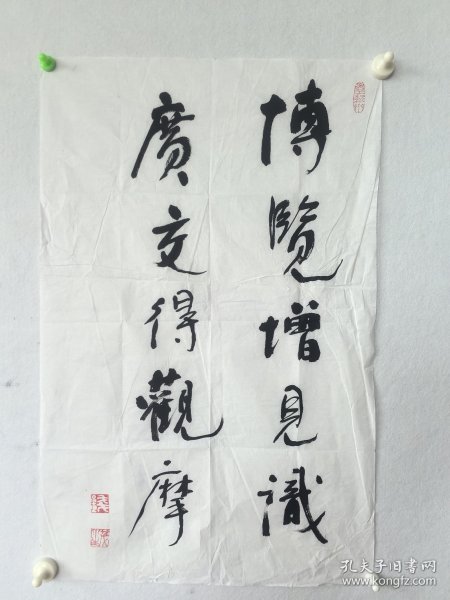 博覽增見識
廣交得觀摩
孔夫子旧书网
www.kongfz.com